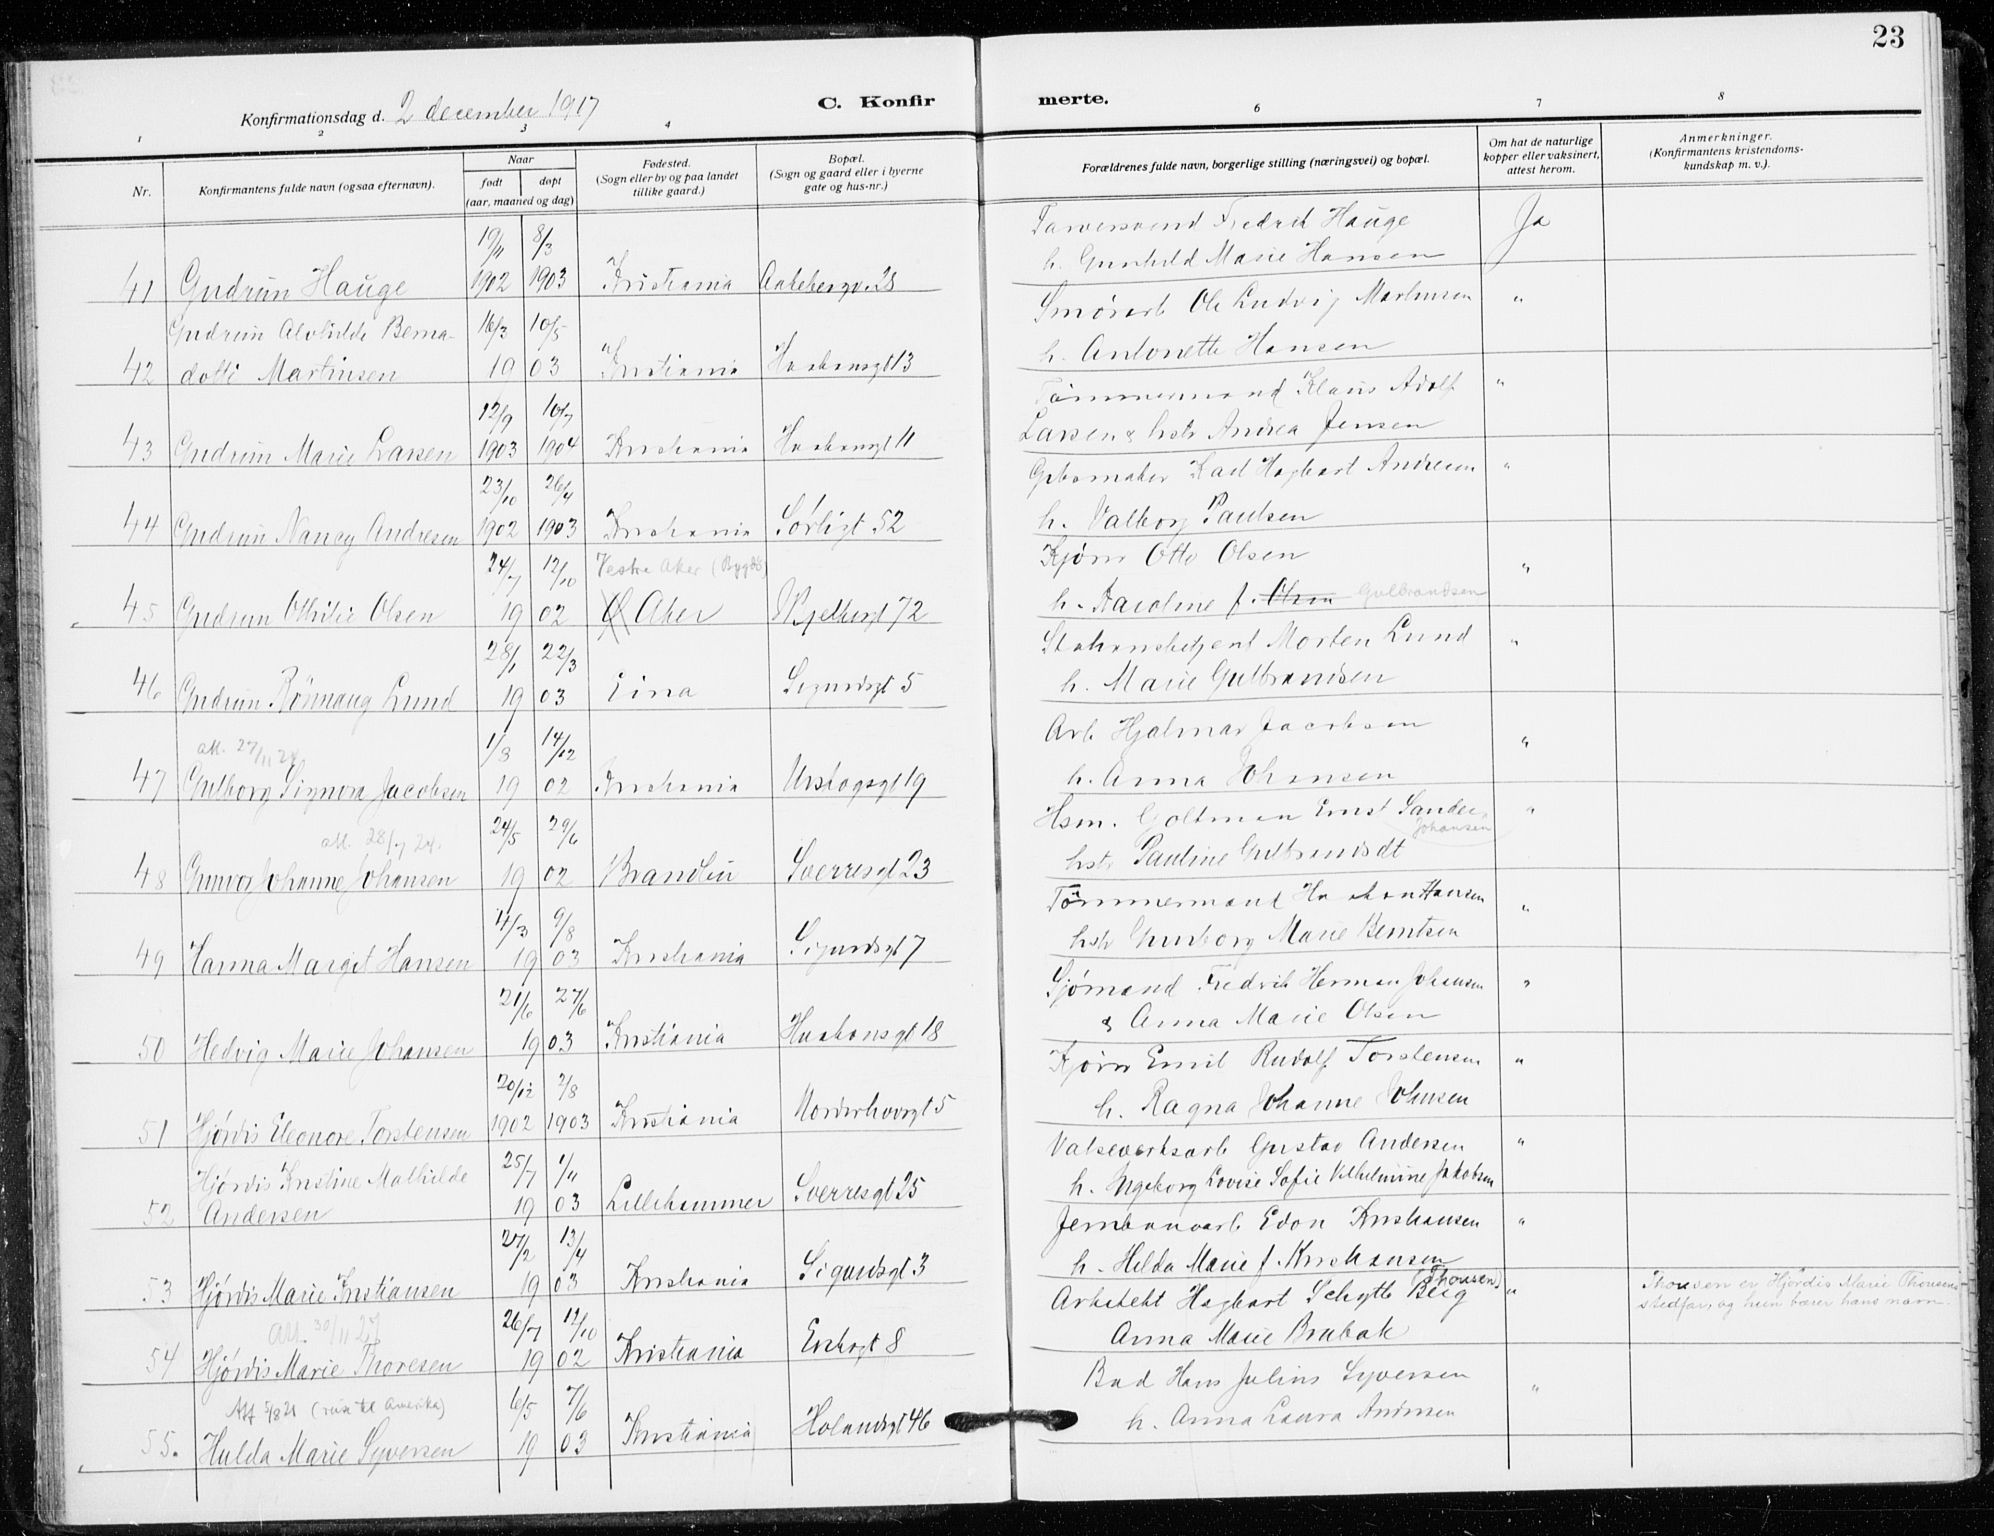 23
Konfirmationsdag d. 2 december 1917
C. Konfirmerte.
1 2 3 4 6 7 8
Nr.
Konfirmantens fulde navn (ogsaa efternavn).
Naar
født døpt
(aar, maaned og dag)
Fødested.
(Sogn eller by og paa landet
tillike gaard.)
Bopæl.
(Sogn og gaard eller i byerne
gate og hus-nr.)
Forældrenes fulde navn, borgerlige stilling (næringsvei) og bopæl.
Om hat de naturlige
kopper eller vaksinert,
attest herom.
Anmerkninger.
(Konfirmantens kristendoms-
kundskap m. v.).
19/11 8/3 Fredrik Hauge Ja
41 Gudrun Hauge 1902 1903 Kristiania Aakebergv. 28 h. Gunhild Marie Hansen
Gudrun Alvhilde Berna- 16/3 10/5 Ole Ludvig Martinsen "
42 dotte Martinsen 19 03 Kristiania Haakonsgt 13 h. Antonette Hansen
12/9 10/7 Tømmermand Klaus Adolf "
43 Gudrun Marie Larsen 1903 1904 Kristiania Haakonsgt 11 Larsen & hstr Andrea Jensen
23/10 26/4 Gjbsmaker Karl Hagbart Andresen "
44 Gudrun Nancy Andresen 1902 1903 Kristiania Sørligt 52 h. Valborg Paulsen
24/7 12/10 Vestre Aker (Bygdø) Kjører Otto Olsen "
45 Gudrun Othilie Olsen 19 02 Ø Aker Hjelbergt 72 h. Karoline f. Olsen Gulbrandsen
28/1 22/3 Stationsbetjent Morten Lund "
46 Gudrun Rönnaug Lund 19 03 Eina Sigurdsgt 5 h. Marie Gulbrandsen
att. 27/11 28 1/3 14/12 Arb. Hjalmar Jacobsen "
47 Gulborg Signora Jacobsen 19 02 Kristiania Urtehagsgt 19 h. Anna Johansen
att. 28/7 24. 24/5 29/6 Hsm. Ernst Sander "
Johansen
48 Gunvor Johanne Johansen 19 02 Brandbu Sverresgt 23 hstr Pauline Gulbrandsdt
4/3 9/8 Tømmermand Haakon Hansen "
49 Hanna Margit Hansen 19 03 Kristiania Sigurdsgt 7 hstr Gunborg Marie Berntsen
21/6 27/6 Sjømand Fredrik Herman Johansen "
50 Hedvig Marie Johansen 19 03 Kristiania Haakonsgt 18 & Anna Marie Olsen
20/12 2/8 Kjører Emil Rudolf Torstensen "
51 Hjørdis Eleonore Torstensen 1902 1903 Kristiania Norderhovgt 5 h. Ragna Johanne Johnsen
Hjørdis Kristine Mathilde 25/7 1/11 Valseverksarb Gustav Andersen "
52 Andersen 19 03 Lillehammer Sverresgt 25 h. Ingeborg Lovise Sofie Vilhelmine Jakobsen
27/2 13/4 Jernbanearb Edon Kristiansen "
53 Hjørdis Marie Kristiansen 19 03 Kristiania Sigurdsgt 3 h. Hilda Marie f. Kristiansen
Att. 30/11 27 26/7 12/10 Arkitekt Hagbart Schytte Berg (Thoresen) " Thoresen er Hjørdis Marie Thoresens
stedfar, og hun bærer hans navn.
54 Hjørdis Marie Thoresen 19 02 Kristiania 8 Anna Marie Brubak
Att 5/8 21 (reise til Amerika) 6/5 7/6 Bud Hans Julius Syversen "
55. Hulda Marie Syversen 19 03 Kristiania Holandsgt 46 h. Anna Laura Andersen